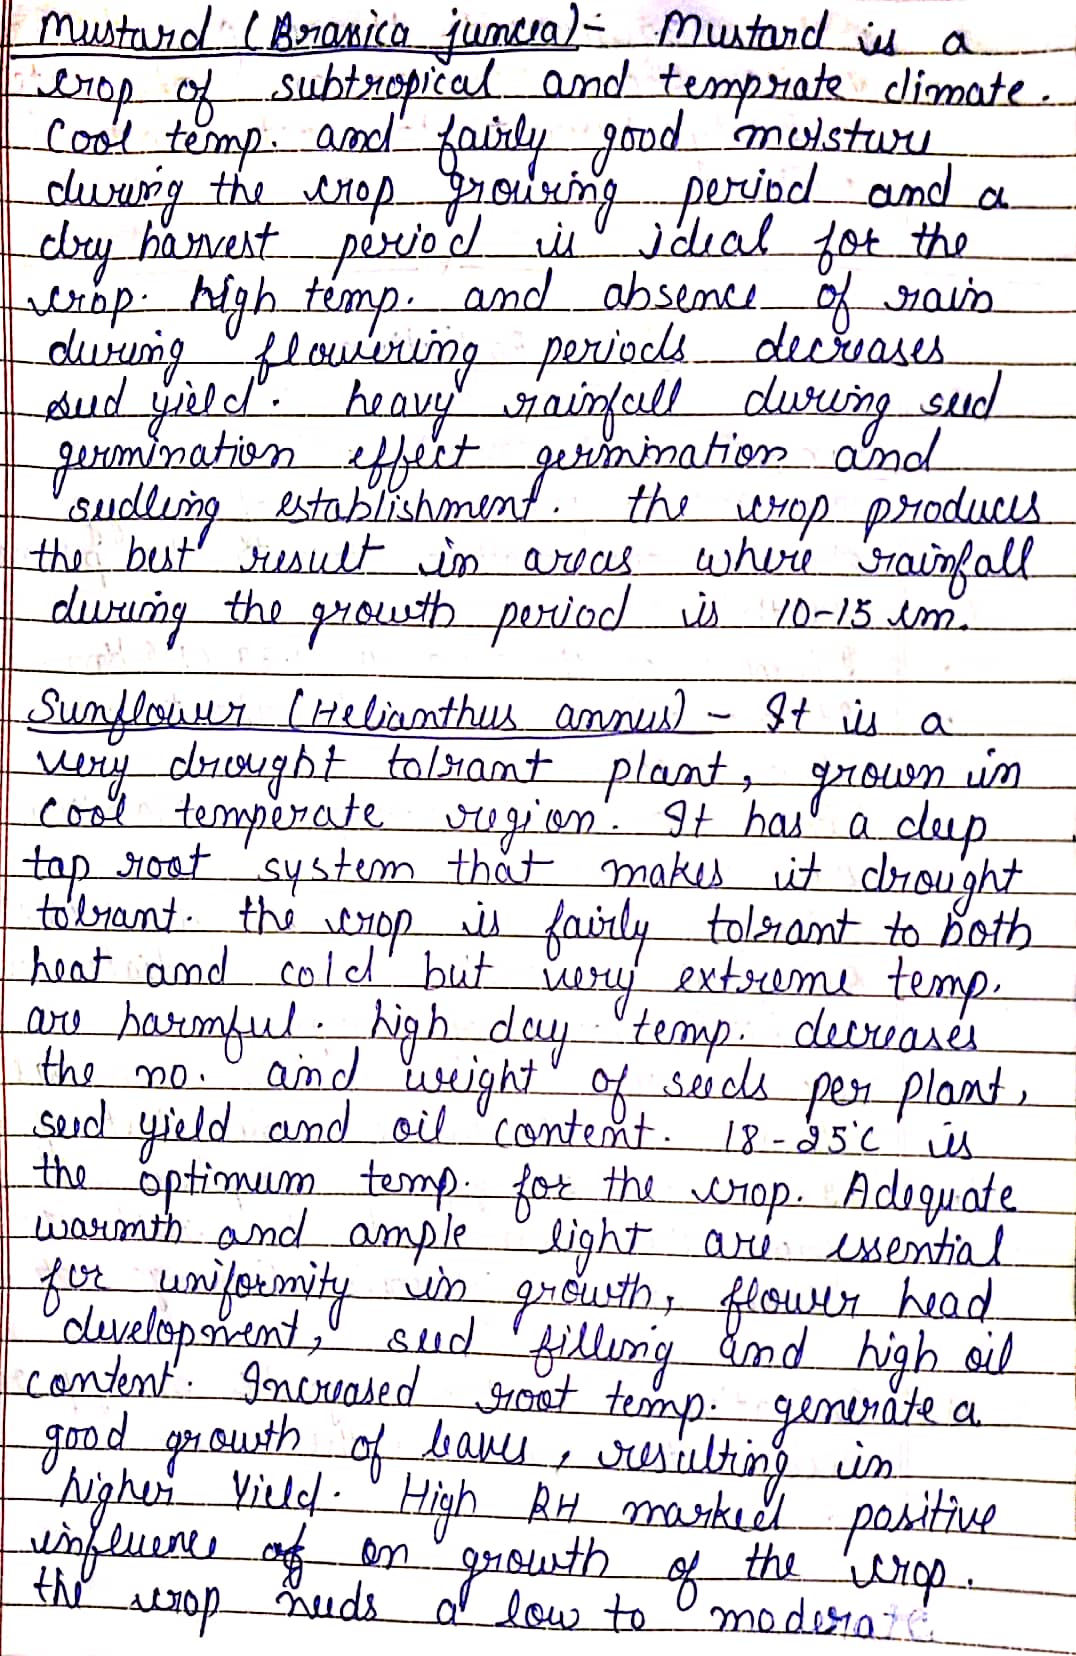 Mustard (Brasica juncea)- Mustard is a
crop of subtropical and temprate climate.
Cool temp. and fairly good moisture
during the crop growing period and a
dry harvest period is ideal for the
crop. high temp. and absence of rain
during flowering periods decreases
seed yield. heavy rainfall during seed
germination effect germination and
seedling establishment. the crop produces
the best result in areas where rainfall
during the growth period is 10-15 cm.
Sunflower (Helianthus annus) - It is a
very drought tolrant plant, grown in
cool temperate region. It has a deep
tap root system that makes it drought
tolrant. the crop is fairly tolrant to both
heat and cold but very extreme temp.
are harmful. high day temp. decreases
the no. and weight of seeds per plant,
seed yield and oil content. 18-25°C is
the optimum temp. for the crop. Adequate
warmth and ample light are essential
for uniformity in growth, flower head
development, seed filling and high oil
content. Increased root temp. generate a
good growth of leaves, resulting in
higher Yield. High RH marked positive
influence of on growth of the crop.
the crop needs a low to moderate